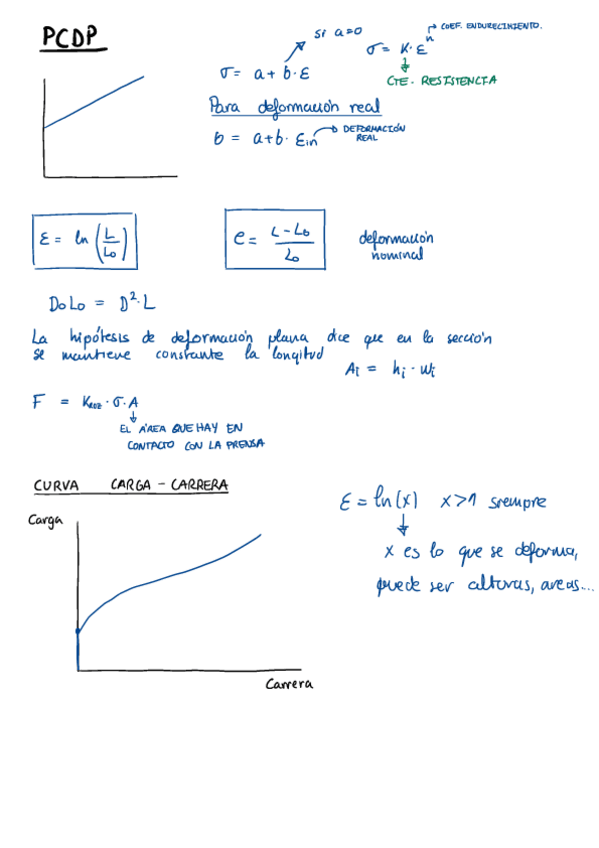 PCDP
si a=0
σ = K·ε^n
COEF. ENDURECIMIENTO.
σ = a + b·ε
CTE. RESISTENCIA
Para deformación real
σ = a+b· εin
DEFORMACIÓN REAL
ε = ln (L/Lo)
e = (L-Lo)/Lo
deformación
nominal
DoLo = D²·L
La hipótesis de deformación plana dice que en la sección
se mantiene constante la longitud
Ai = hi · wi
F = Kroz · σ · A
EL ÁREA QUE HAY EN
CONTACTO CON LA PRENSA
CURVA CARGA - CARRERA
ε = ln(x) x>1 siempre
Carga
x es lo que se deforma,
puede ser alturas, areas...
Carrera